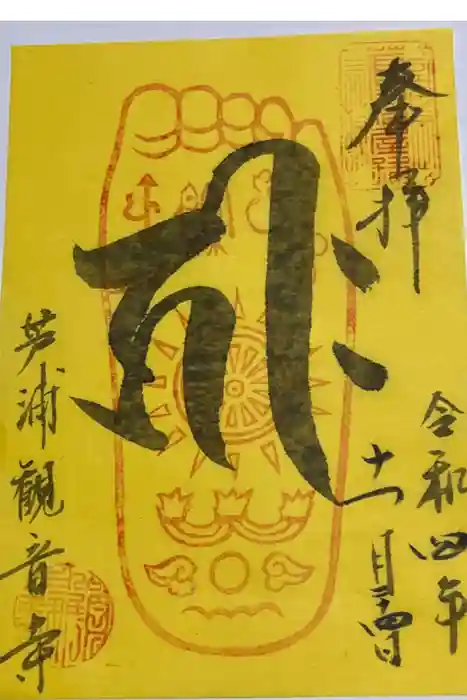 奉拝
令和四年
十一月
芦浦觀音寺